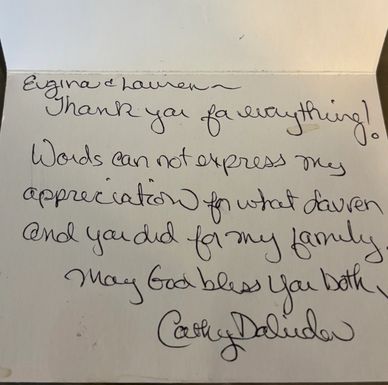 Eugina & Lauren ~
Thank you for everything!
Words can not express my
appreciation for what Lauren
and you did for my family.
May God bless you both,
Cathy